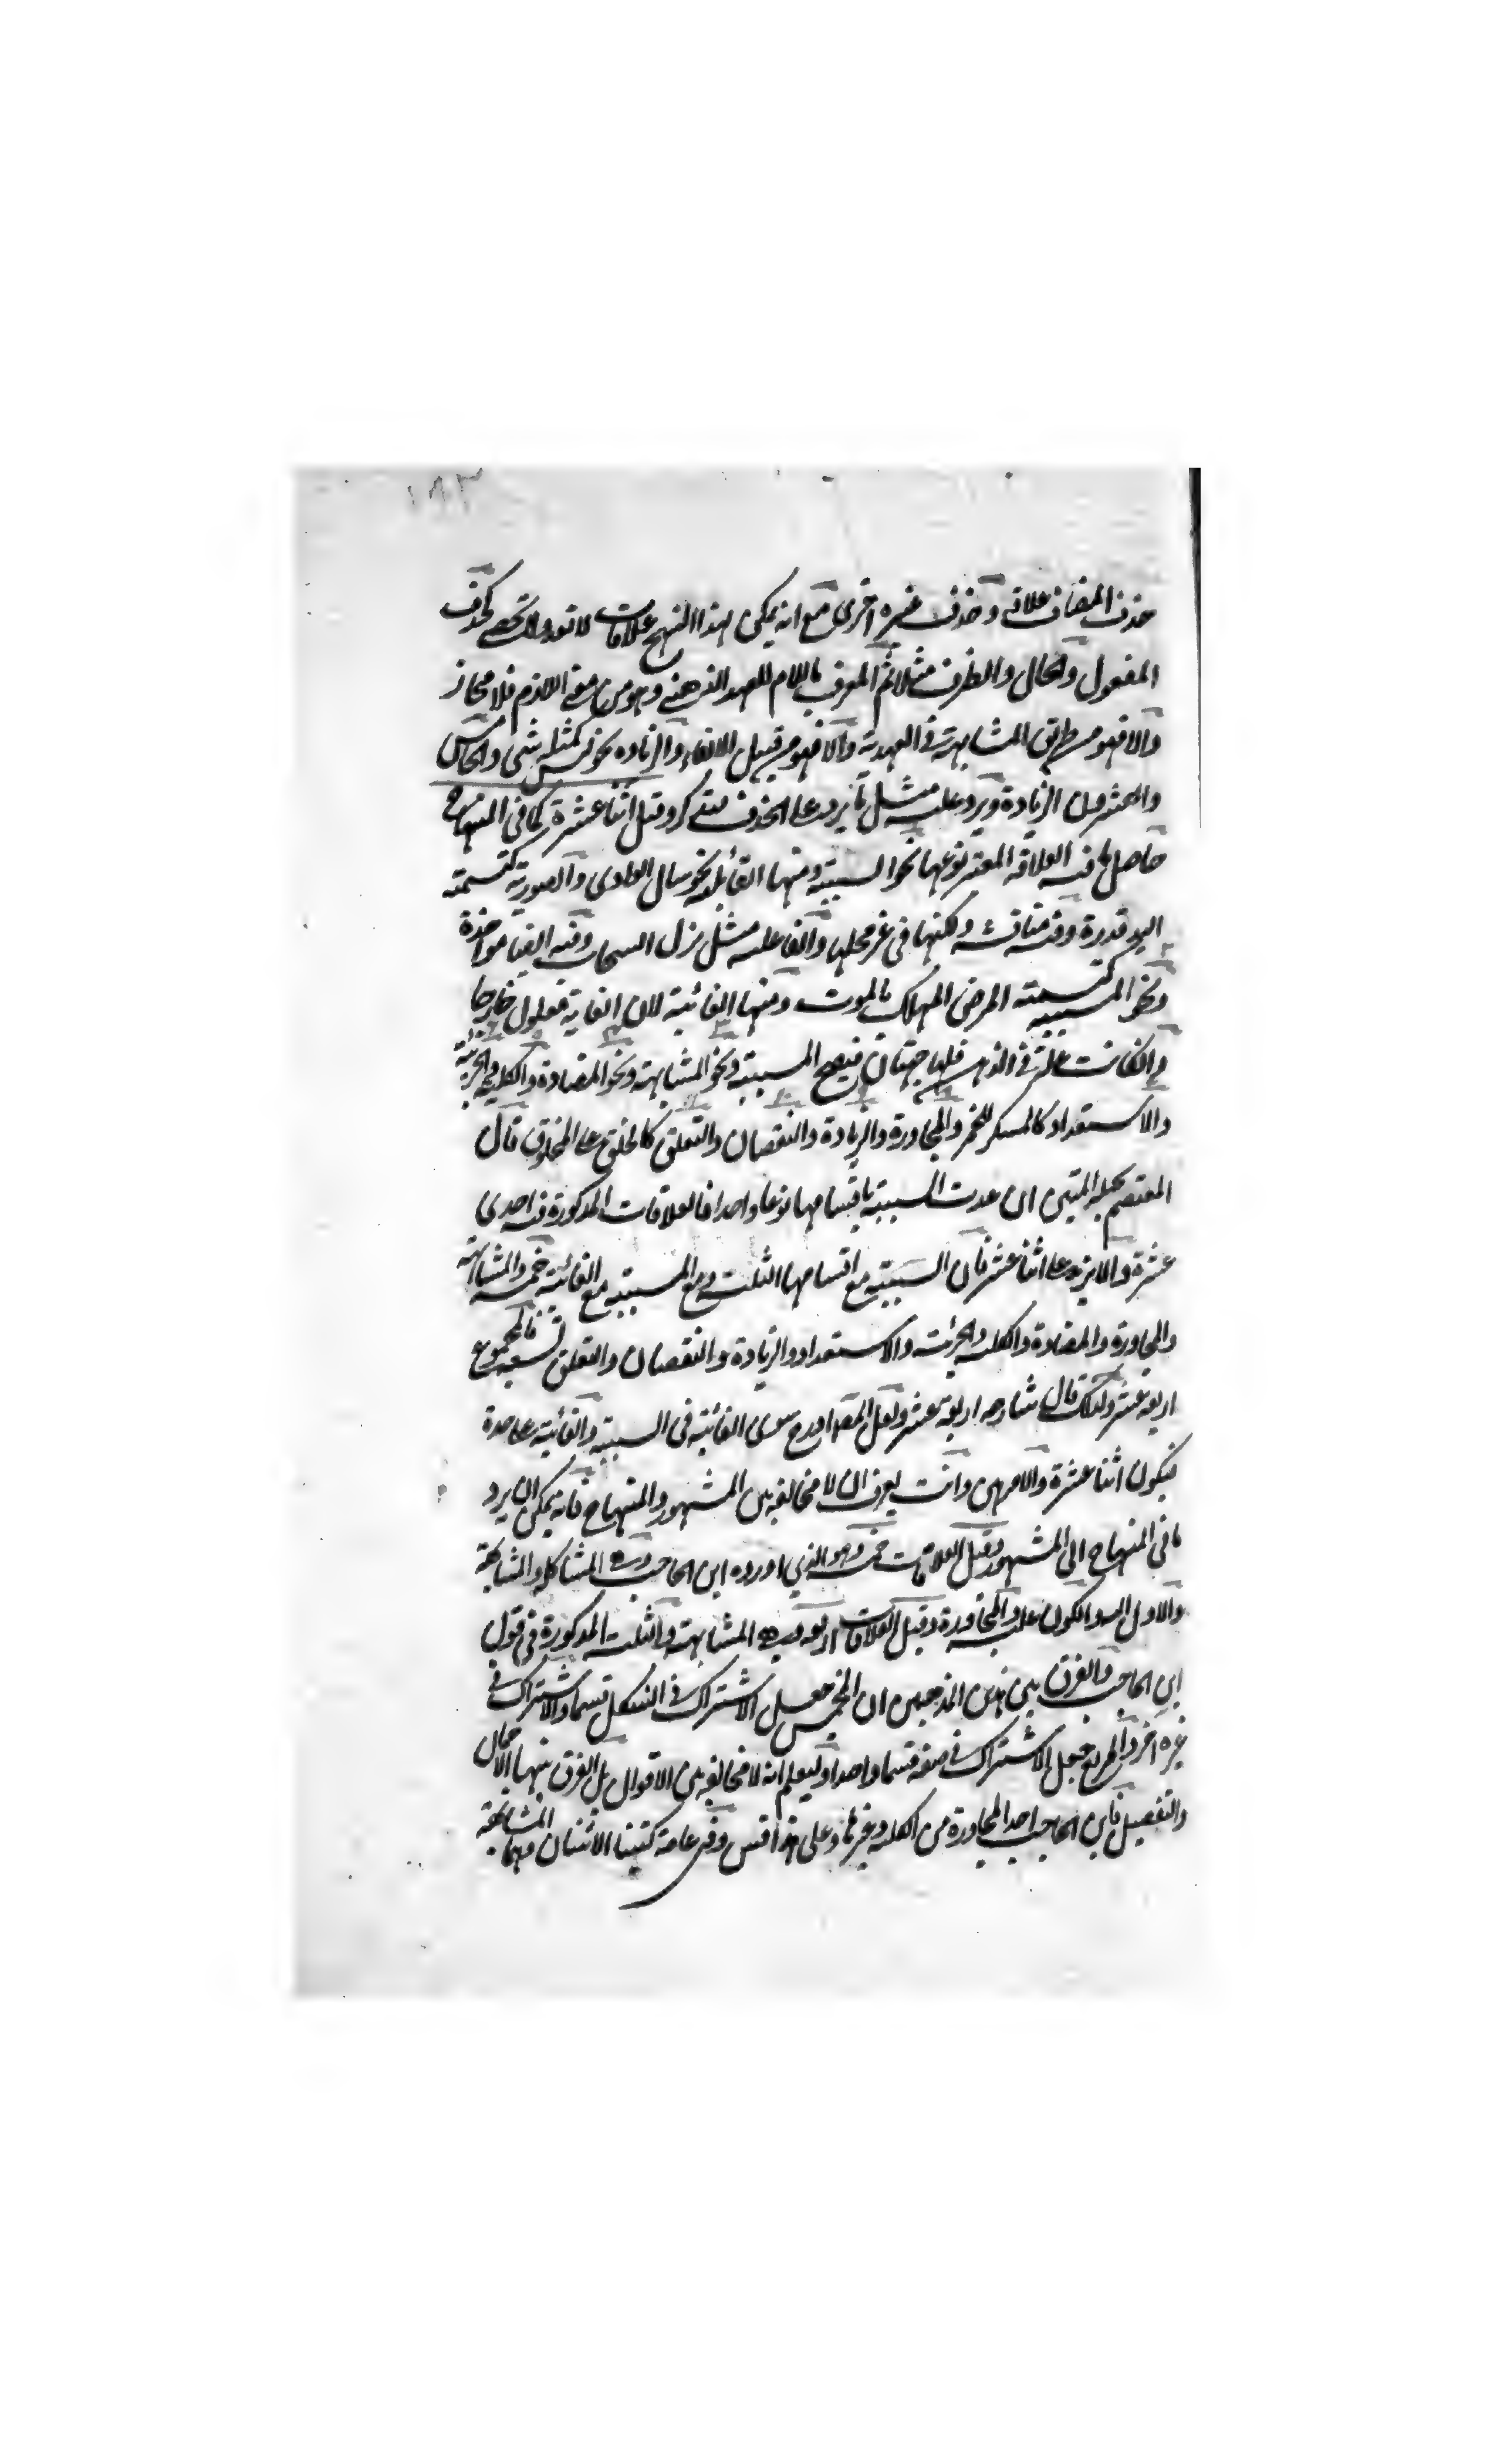 ١٨٣
حذف المضاف علاقة وحذف غيره اخرى مع انه يمكن بهذا النهج علاقات لا تعد ولا تحصى كحذف
المفعول والحال والظرف مثلا ثم المعرف باللام للعهد الذهني وهو من معنى اللازم فلا مجاز
والا فهو من طريق المشابهة في العهدية والا فهو من قبيل الالغاء والزيادة نحو ليس كمثله شي والخامس
والعشرون الزيادة ويرد عليه مثل ما يرد على الحذف فتذكر وقيل اثنا عشرة كما في المنهاج
حاصل ما فيه العلاقة المعتبر نوعها نحو السببية ومنها القابلية نحو سال الوادي والصورية كتسمية
اليد قدرة وفيه مناقشة ولكنها في غير محلها والفاعلية مثل نزل السحاب وفيه ايضا مواخذة
ونحو المسببية كتسمية المرض المهلك بالموت ومنها الغائية لان الغاية معلول خارجا
وان كانت علة في الذهن فلها جهتان فيصح المسببية ونحو المشابهة ونحو المضادة والكلية والجزئية
والاستعداد كالمسكر للخمر والمجاورة والزيادة والنقصان والتعلق كالخلق على المخلوق قال
المعتصم بحبله المتين ان عدت السببية باقسامها نوعا واحدا فالعلاقات المذكورة فيه احدى
عشرة والا يزيد على اثنا عشر فان السببية مع اقسامها الثلث ومع المسببية مع الغائية خمسة والمشابهة
والمجاورة والمضادة والكلية والجزئية والاستعداد والزيادة والنقصان والتعلق تسعة فالمجموع
اربعة عشر ولذلك قال شارحه اربعة عشر ولعل المص ادرج سوى الغائية في السببية والغائية على حدة
فيكون اثنا عشرة والامر هين وانت تعرف ان لا مخالفة بين المشهور والمنهاج فانه يمكن ان يرد
ما في المنهاج الى المشهور وقيل العلاقات خمسة وهو الذي اورده ابن الحاجب وهي المشاكلة والمشابهة
والاول اليه والكون عليه والمجاورة وقيل العلاقات اربعة وهي المشابهة والثلث المذكورة في قول
ابن الحاجب والفرق بين هذين المذهبين ان المخمس جعل الاشتراك في الشكل قسما والاشتراك في
غيره اخر والمربع جعل الاشتراك في صفة قسما واحدا وليعلم انه لا مخالفة بين الاقوال بل الفرق بينها الاجمال
والتفصيل فابن الحاجب اخذ المجاورة من الكلية وغيرها وعلى هذا قس وفي عامة كتبنا الاثنان وهما المشابهة